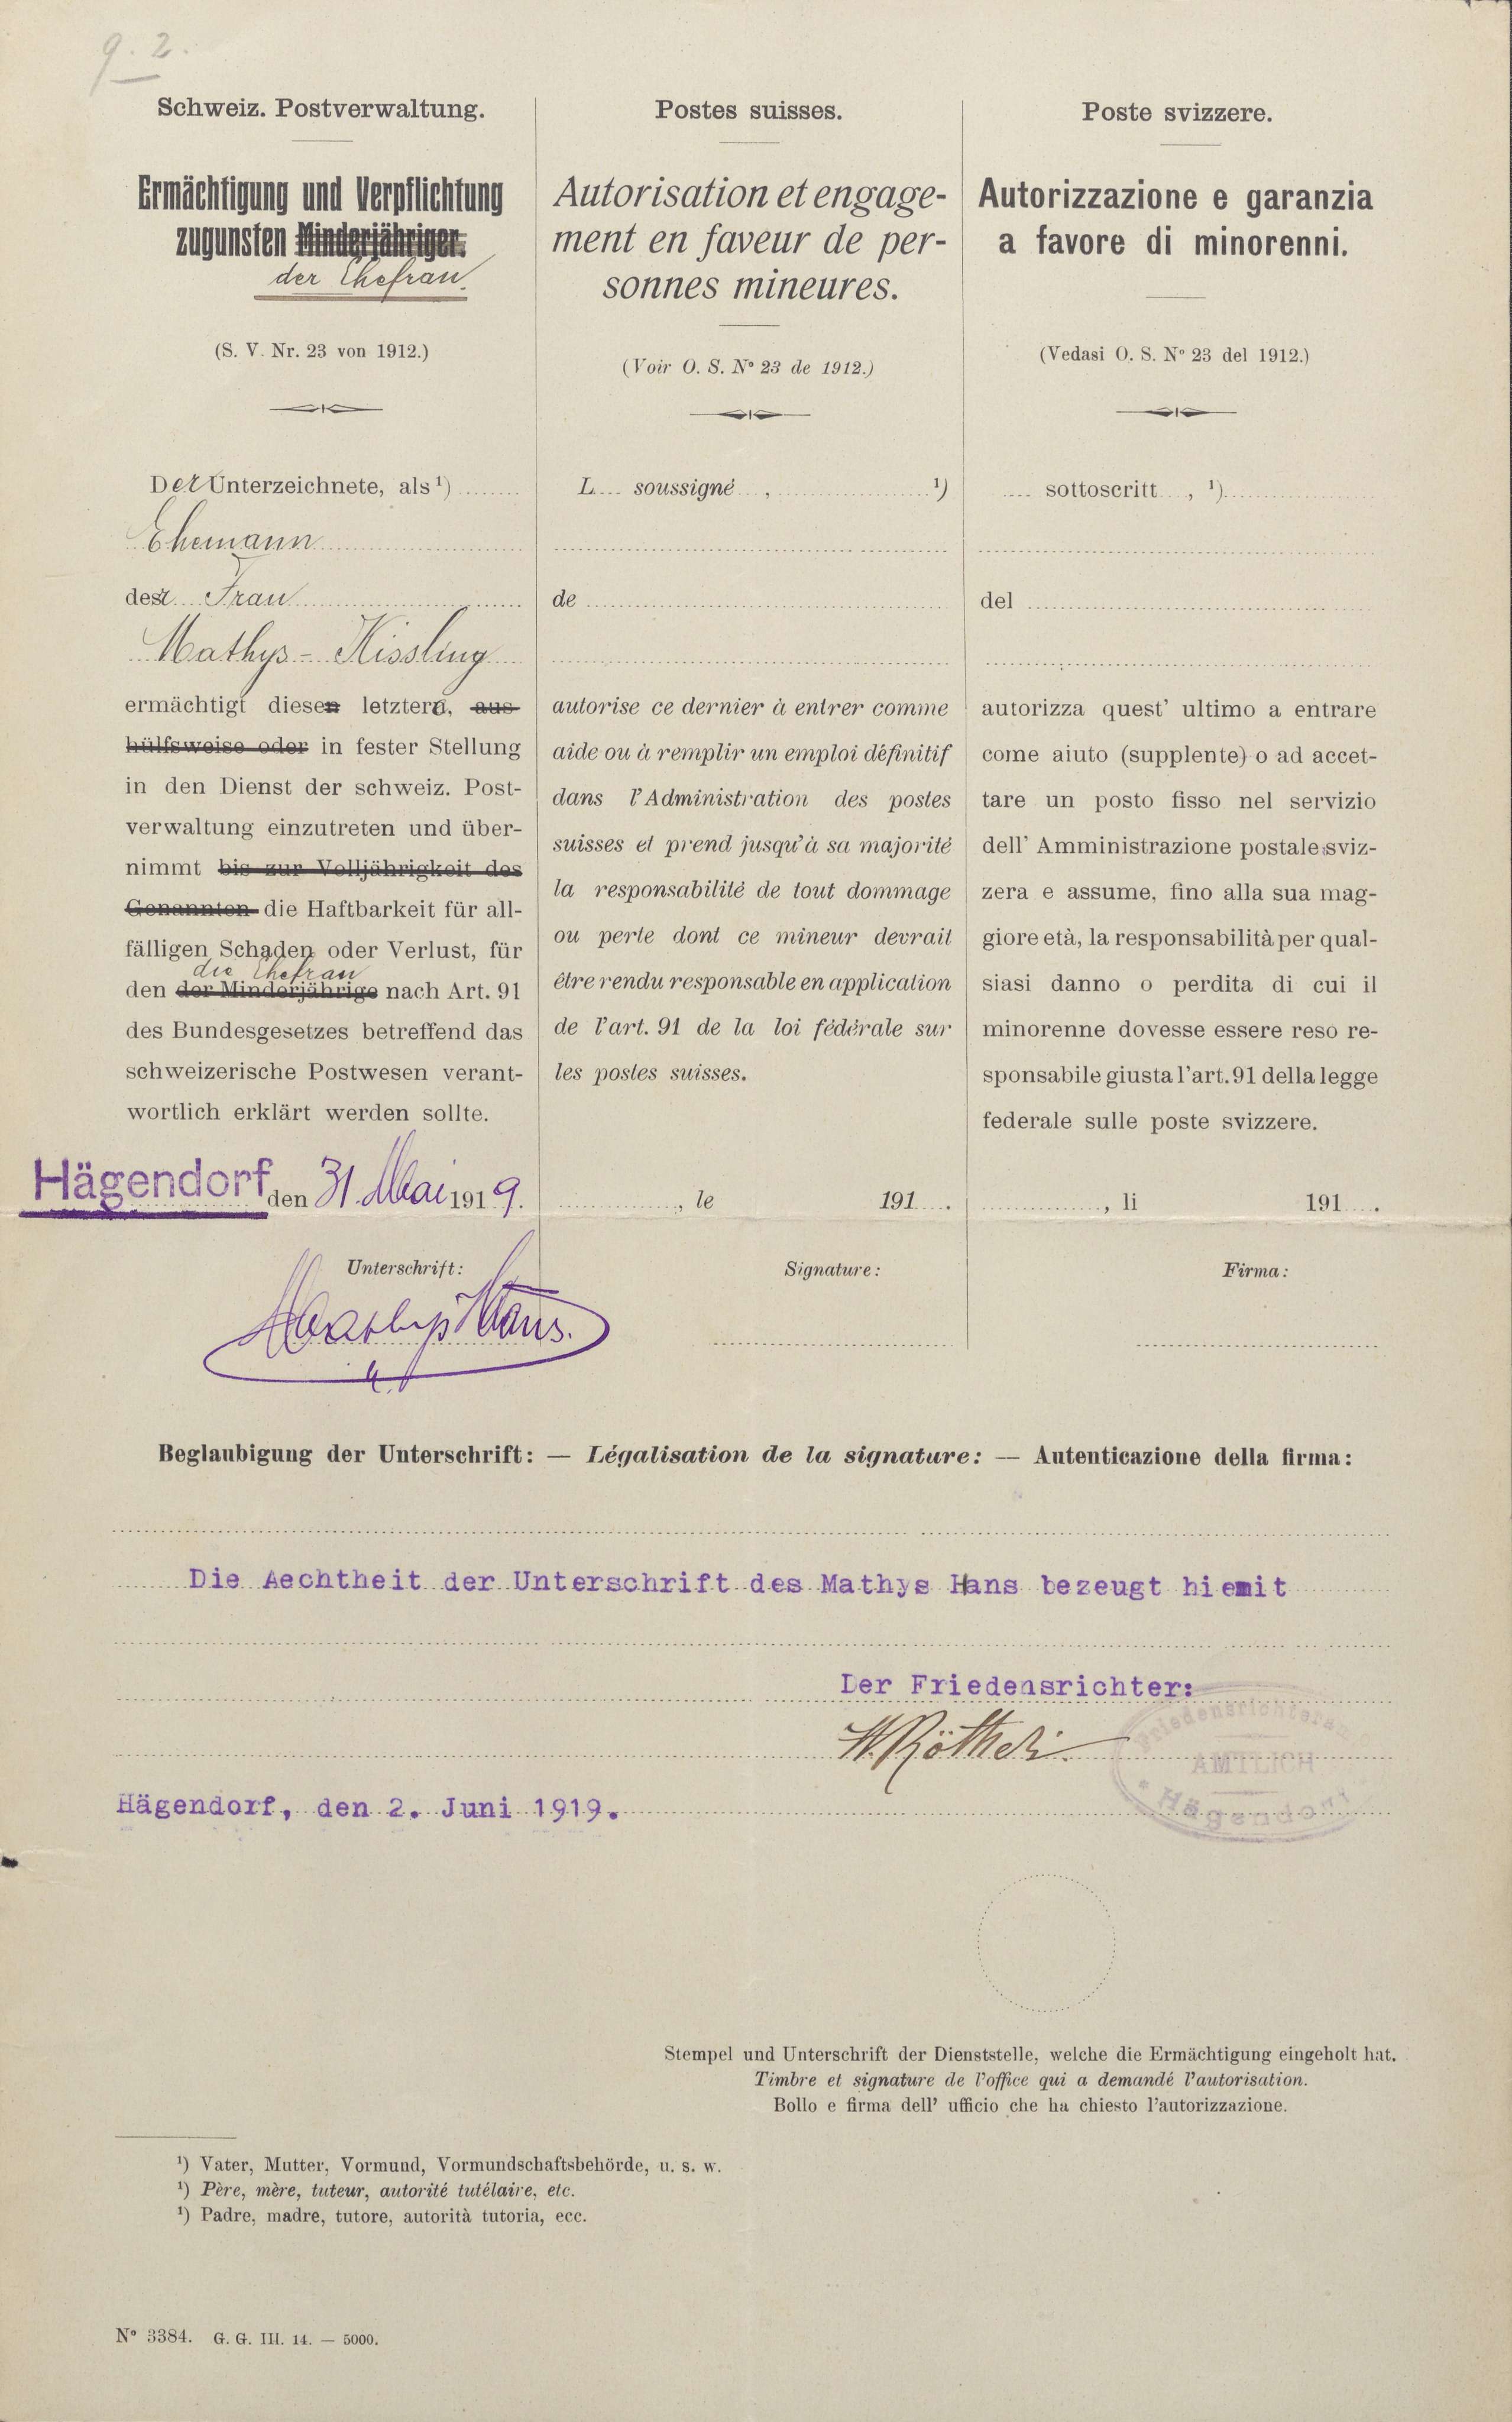 9. 2.
Schweiz. Postverwaltung.
Ermächtigung und Verpflichtung
zugunsten Minderjähriger.
der Ehefrau.
(S. V. Nr. 23 von 1912.)
Der Unterzeichnete, als ¹)
Ehemann
der Frau
Mathys - Kissling
ermächtigt diesen letztern, aus-
hülfsweise oder in fester Stellung
in den Dienst der schweiz. Post-
verwaltung einzutreten und über-
nimmt bis zur Volljährigkeit des
Genannten die Haftbarkeit für all-
fälligen Schaden oder Verlust, für
die Ehefrau
den der Minderjährige nach Art. 91
des Bundesgesetzes betreffend das
schweizerische Postwesen verant-
wortlich erklärt werden sollte.
Hägendorf den 31. Mai 1919.
Unterschrift:
Mathys Hans.
Postes suisses.
Autorisation et engage-
ment en faveur de per-
sonnes mineures.
(Voir O. S. Nº 23 de 1912.)
L.... soussigné ...., ¹)
de
autorise ce dernier à entrer comme
aide ou à remplir un emploi définitif
dans l'Administration des postes
suisses et prend jusqu'à sa majorité
la responsabilité de tout dommage
ou perte dont ce mineur devrait
être rendu responsable en application
de l'art. 91 de la loi fédérale sur
les postes suisses.
, le 191 .
Signature:
Poste svizzere.
Autorizzazione e garanzia
a favore di minorenni.
(Vedasi O. S. Nº 23 del 1912.)
.... sottoscritt...., ¹)
del
autorizza quest' ultimo a entrare
come aiuto (supplente) o ad accet-
tare un posto fisso nel servizio
dell' Amministrazione postale sviz-
zera e assume, fino alla sua mag-
giore età, la responsabilità per qual-
siasi danno o perdita di cui il
minorenne dovesse essere reso re-
sponsabile giusta l'art. 91 della legge
federale sulle poste svizzere.
, li 191 .
Firma:
Beglaubigung der Unterschrift: — Légalisation de la signature: — Autenticazione della firma:
Die Aechtheit der Unterschrift des Mathys Hans bezeugt hiemit
Der Friedensrichter:
Friedensrichteramt
AMTLICH
Hägendorf
Hägendorf, den 2. Juni 1919.
Stempel und Unterschrift der Dienststelle, welche die Ermächtigung eingeholt hat.
Timbre et signature de l'office qui a demandé l'autorisation.
Bollo e firma dell' ufficio che ha chiesto l'autorizzazione.
¹) Vater, Mutter, Vormund, Vormundschaftsbehörde, u. s. w.
¹) Père, mère, tuteur, autorité tutélaire, etc.
¹) Padre, madre, tutore, autorità tutoria, ecc.
Nº 3384. G. G. III. 14. — 5000.